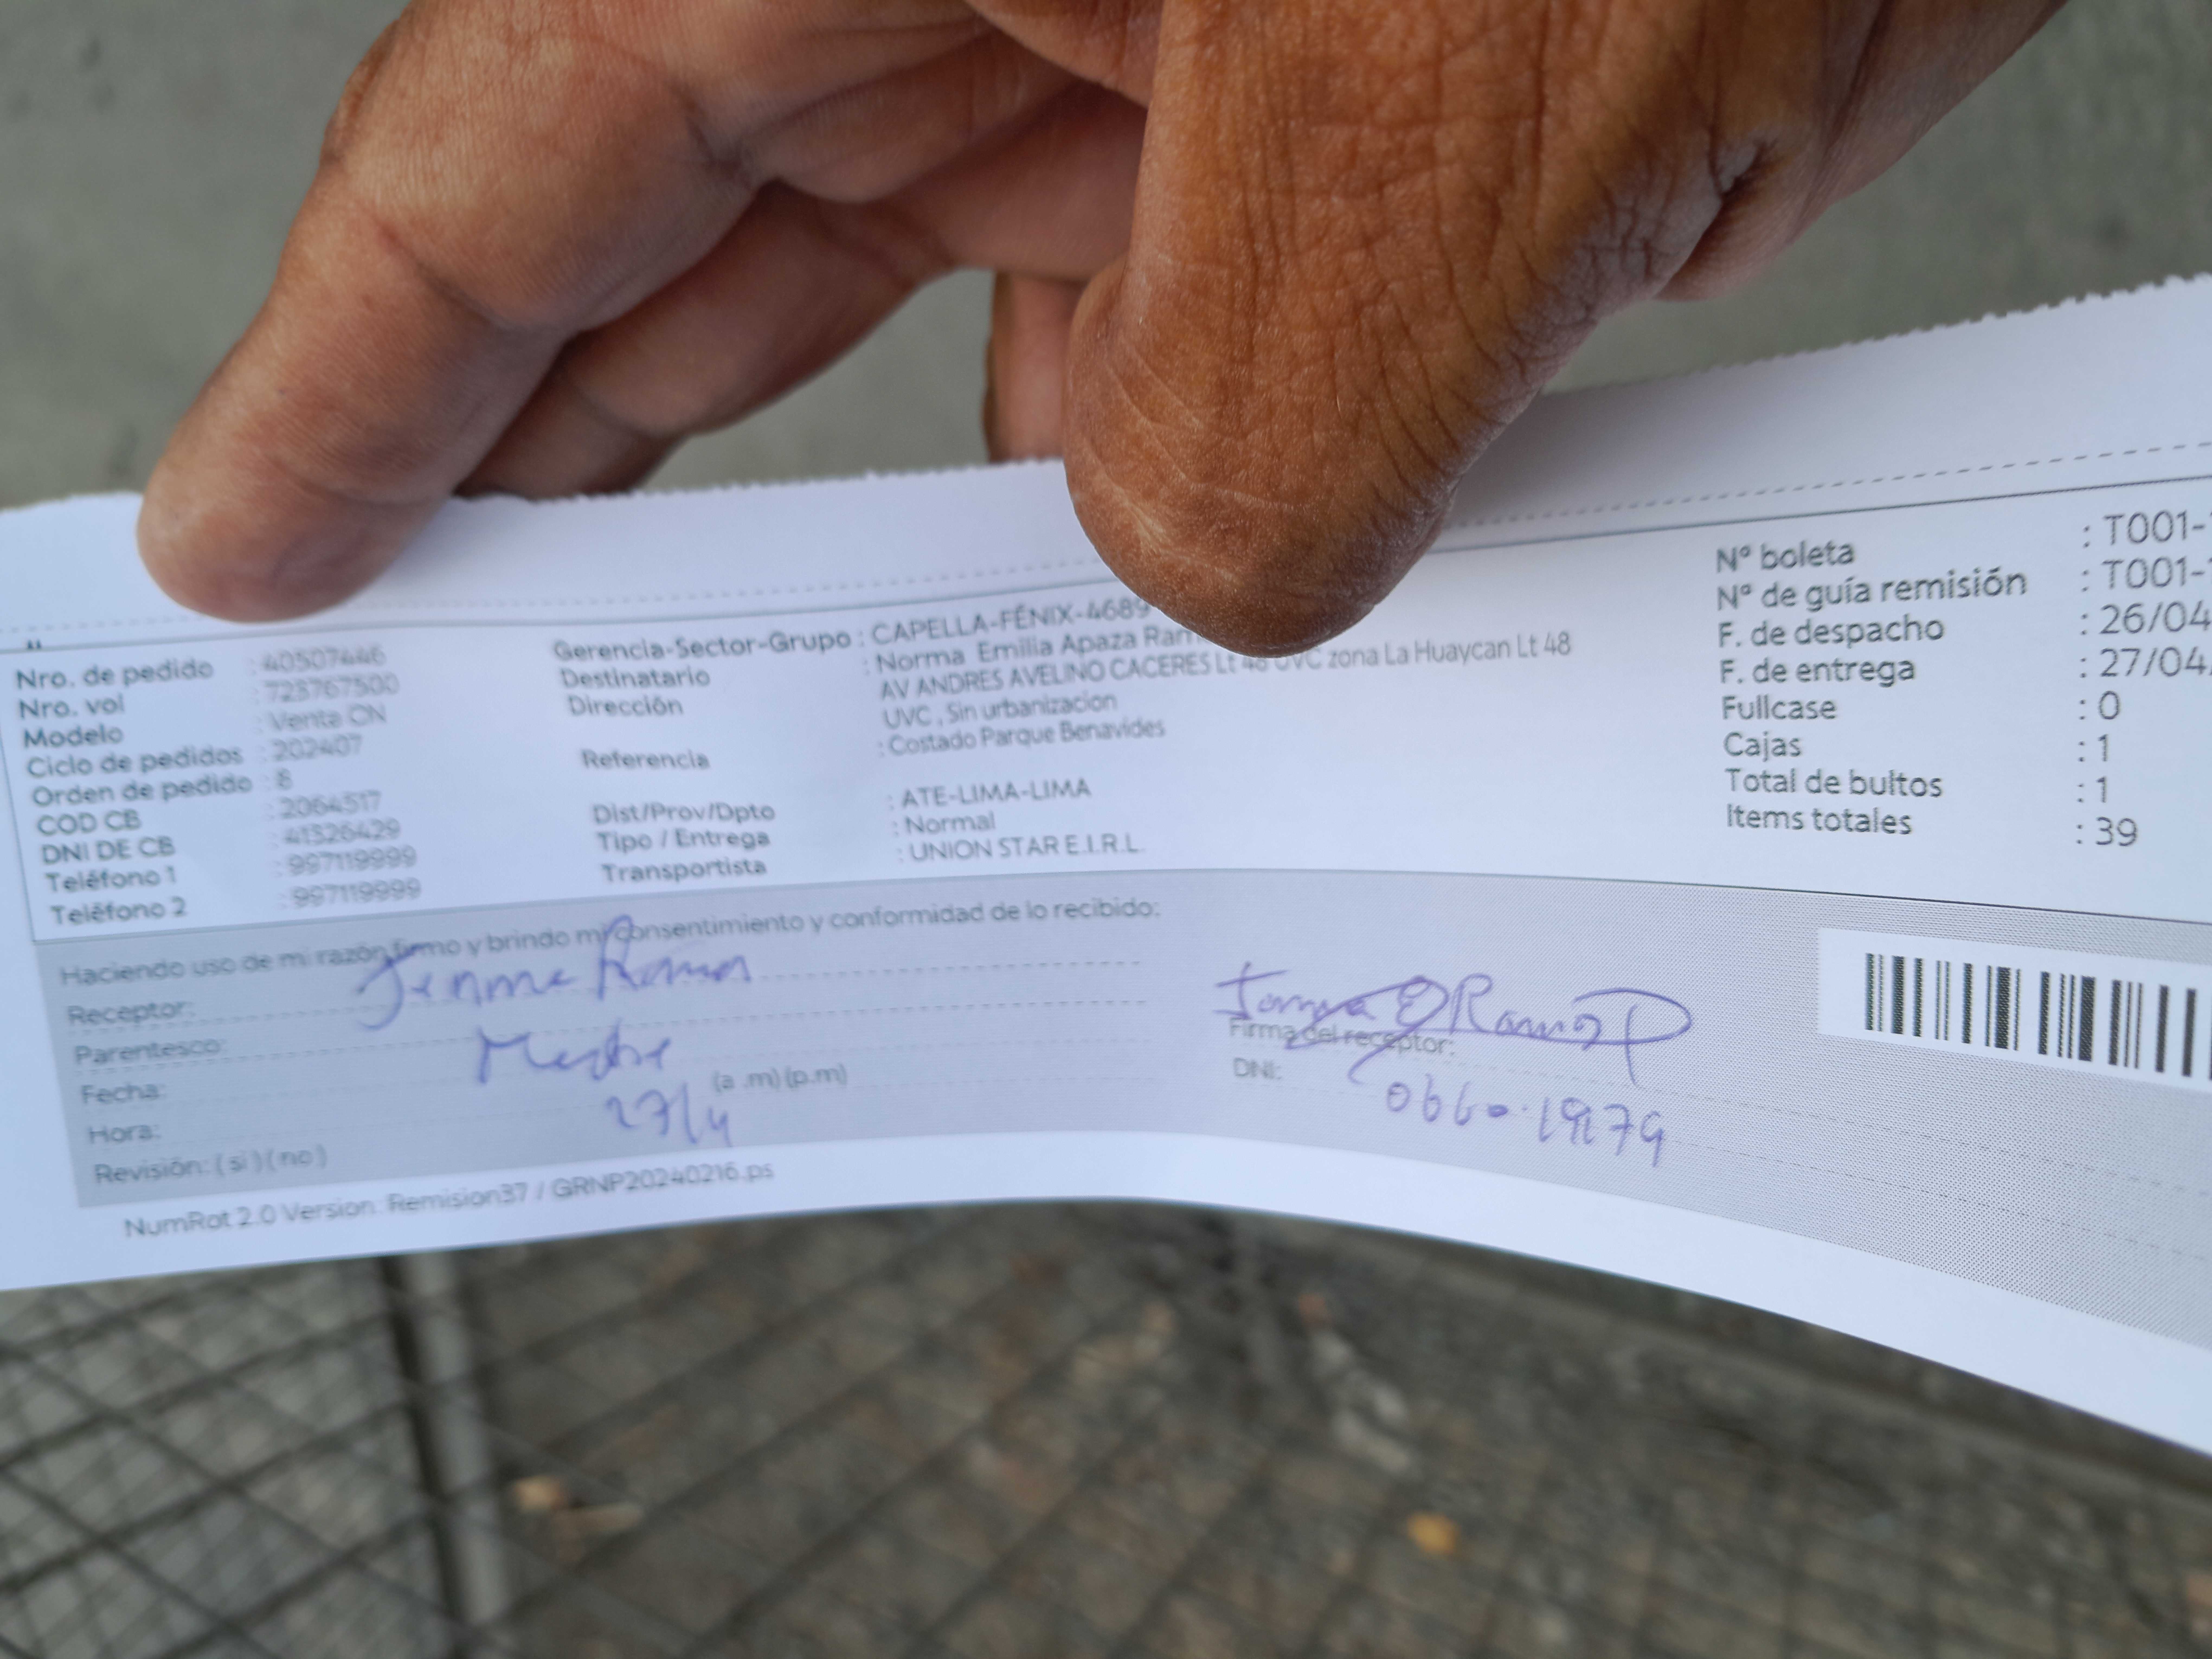 Nro. de pedido : 40507446
Nro. vol : 723767500
Modelo : Venta CN
Ciclo de pedidos : 202407
Orden de pedido : 8
COD CB : 2064517
DNI DE CB : 41326429
Teléfono 1 : 997119999
Teléfono 2 : 997119999
Gerencia-Sector-Grupo : CAPELLA-FÉNIX-4689
Destinatario : Norma Emilia Apaza Ram
Dirección AV ANDRES AVELINO CACERES Lt 48 UVC zona La Huaycan Lt 48
UVC , Sin urbanizacion
Referencia : Costado Parque Benavides
Dist/Prov/Dpto : ATE-LIMA-LIMA
Tipo / Entrega : Normal
Transportista : UNION STAR E.I.R.L.
Nº boleta : T001-
Nº de guía remisión : T001-
F. de despacho : 26/04
F. de entrega : 27/04
Fullcase : 0
Cajas : 1
Total de bultos : 1
Items totales : 39
Haciendo uso de mi razón firmo y brindo mi consentimiento y conformidad de lo recibido:
Receptor:
Parentesco: Madre
Fecha: 27/4
Hora: (a .m) (p.m)
Revisión: ( si ) ( no )
Firma del receptor:
DNI:
NumRot 2.0 Version: Remision37 / GRNP20240216.ps